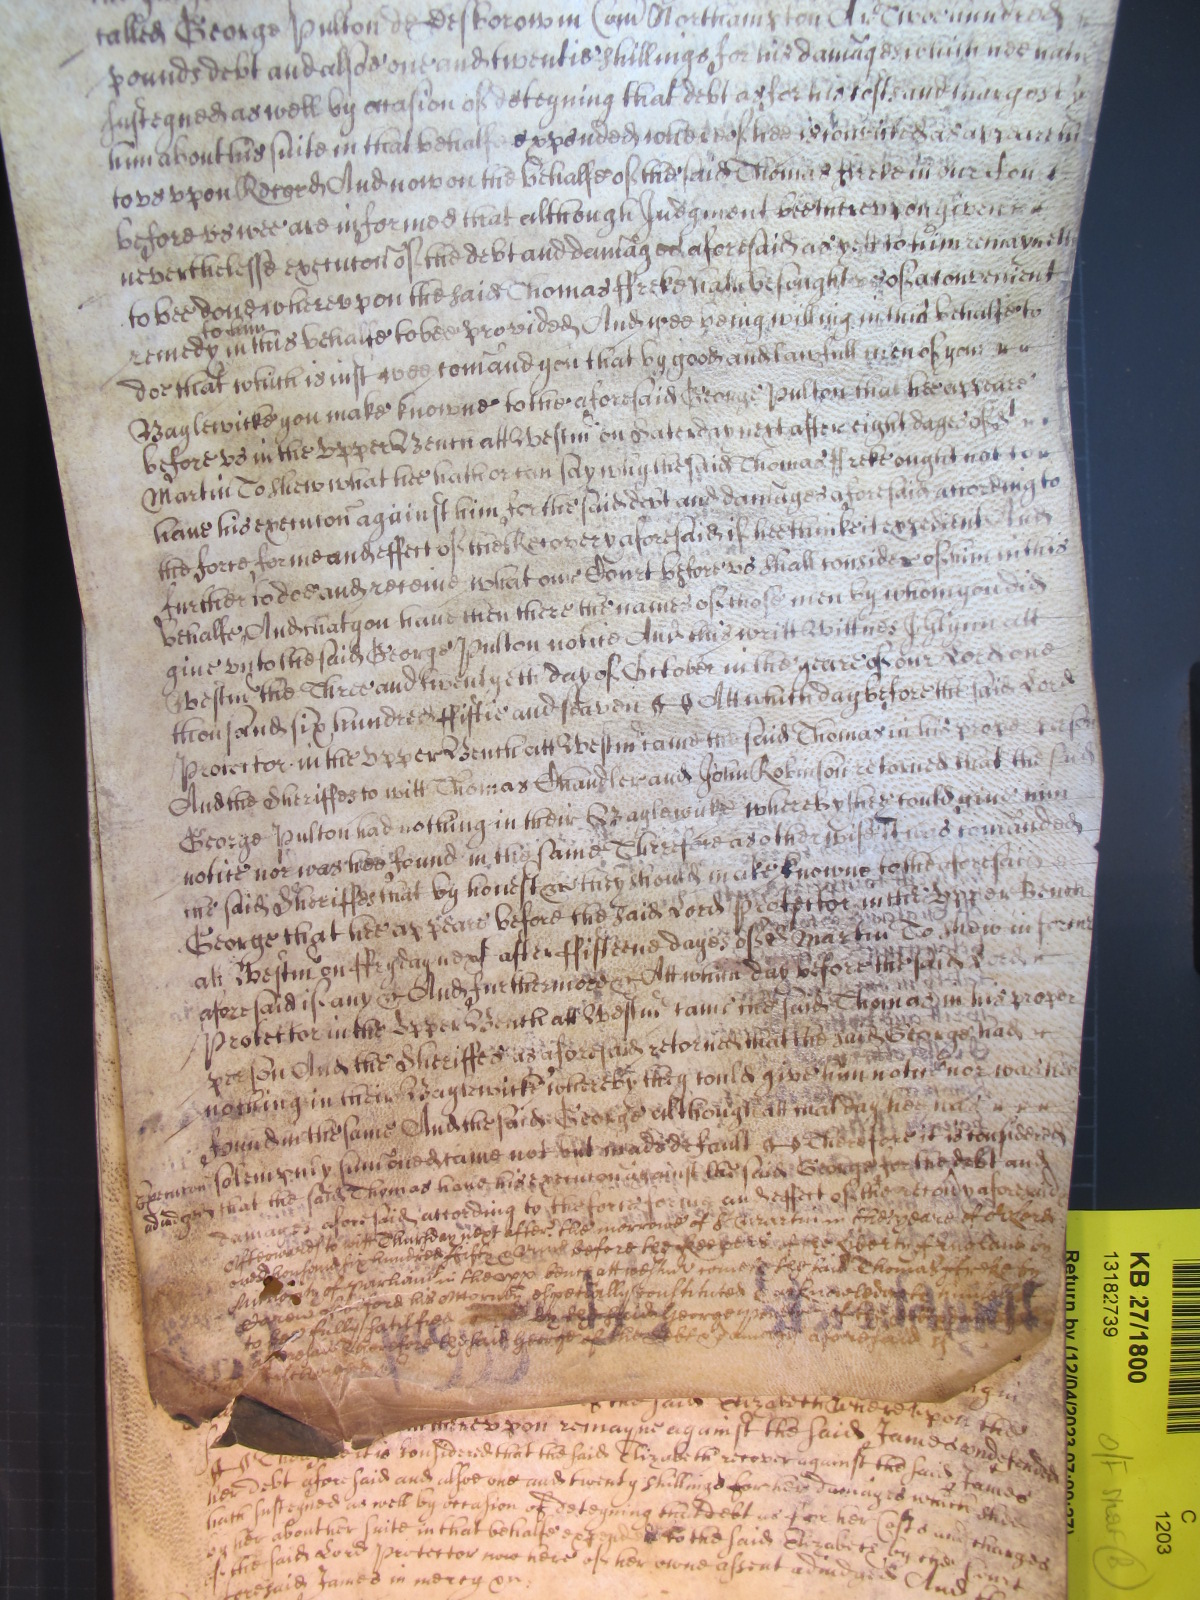 called George Pulton de Desborow in Com Northampton Ar Two hundred
pounds debt and alsoe one and twentie shillings for his damages which hee hath
susteyned as well by occasion of deteyning that debt as for his costs and charges by
him about his suite in that behalfe expended whereof hee is convicted as appeareth
to us upon Record And now on the behalfe of the said Thomas Freke in our Court
before us wee are informed that although Judgment bee thereupon given
neverthelesse execucon of the debt and damages aforesaid as yett to him remayneth
to bee done whereupon the said Thomas Freke hath besought us of a convenient
remedy to him in this behalfe to bee provided And wee being willing in this behalfe to
doe that which is just wee comand you that by good and lawfull men of your
Baylewicke you make knowne to the aforesaid George Pulton that hee appeare
before us in the Upper Bench att Westmr on Saterday next after eight dayes of St
Martin To shew what hee hath or can say why the said Thomas Freke ought not to
have his execucon against him for the said debt and damages aforesaid according to
the force forme and effect of the Recovery aforesaid if hee thinke it expedient And
further to doe and receive what our Court before us shall consider of him in this
behalfe And that you have then there the names of those men by whom you did
give unto the said George Pulton notice And this writt Wittnes J Glynn att
Westmr the Three and twentyeth day of October in the yeare of our Lord one
thousand six hundred fiftie and seaven Att which day before the said Lord
Protector in the Upper Bench att Westmr came the said Thomas in his proper person
And the Sheriffes to witt Thomas Chandler and John Robinson returned that the said
George Pulton had nothing in their Baylewicke whereby they could give him
notice nor was hee found in the same Therefore as otherwise It was comanded
the said Sheriffes that by honest &c they should make knowne to the aforesaid
George that hee appeare before the said Lord Protector in the Upper Bench
att Westmr on Fryday next after fifteene dayes of St Martin To shew in forme
aforesaid if any &c And furthermore &c Att which day before the said Lord
Protector in the Upper Bench att Westmr came the said Thomas in his proper
person And the Sheriffes as aforesaid returned that the said George had
nothing in their Baylewicke whereby they could give him notice nor was hee
found in the same And the said George although att that day hee was
solempnly sumoned came not but made default Therefore it is considered
Execucon adiudged that the said Thomas have his execucon against the said George for the debt and
damages aforesaid according to the force forme and effect of the recovery aforesaid
Afterwards to witt Thursday next after the morrowe of St Martin in the yeare of our Lord
one thousand six hundred fifty before the Keepers of the liberty of England by
Authority of Parliament in the upp bench att Westmr comes the said Thomas Freke by
his Attorney especially constituted &c acknowledgeth himselfe
to bee fully satisfied by the said George
Therefore the said George of the debt &c damages aforesaid
the said Elizabeth whereupon the
thereupon remayne against the said James undefended
Therefore it is considered that the said Elizabeth recover against the said James
her debt aforesaid and alsoe one and twenty shillings for her damages which shee
hath susteyned as well by occasion of deteyning that debt as for her Costs and charges
by her about her suite in that behalfe expended to the said Elizabeth by the Court
of the said Lord Protector now here of her owne assent adiudged And the
aforesaid James in mercy
KB 27/1800
13182739
Return by (12/04/2023 07:00:27)
C
1203